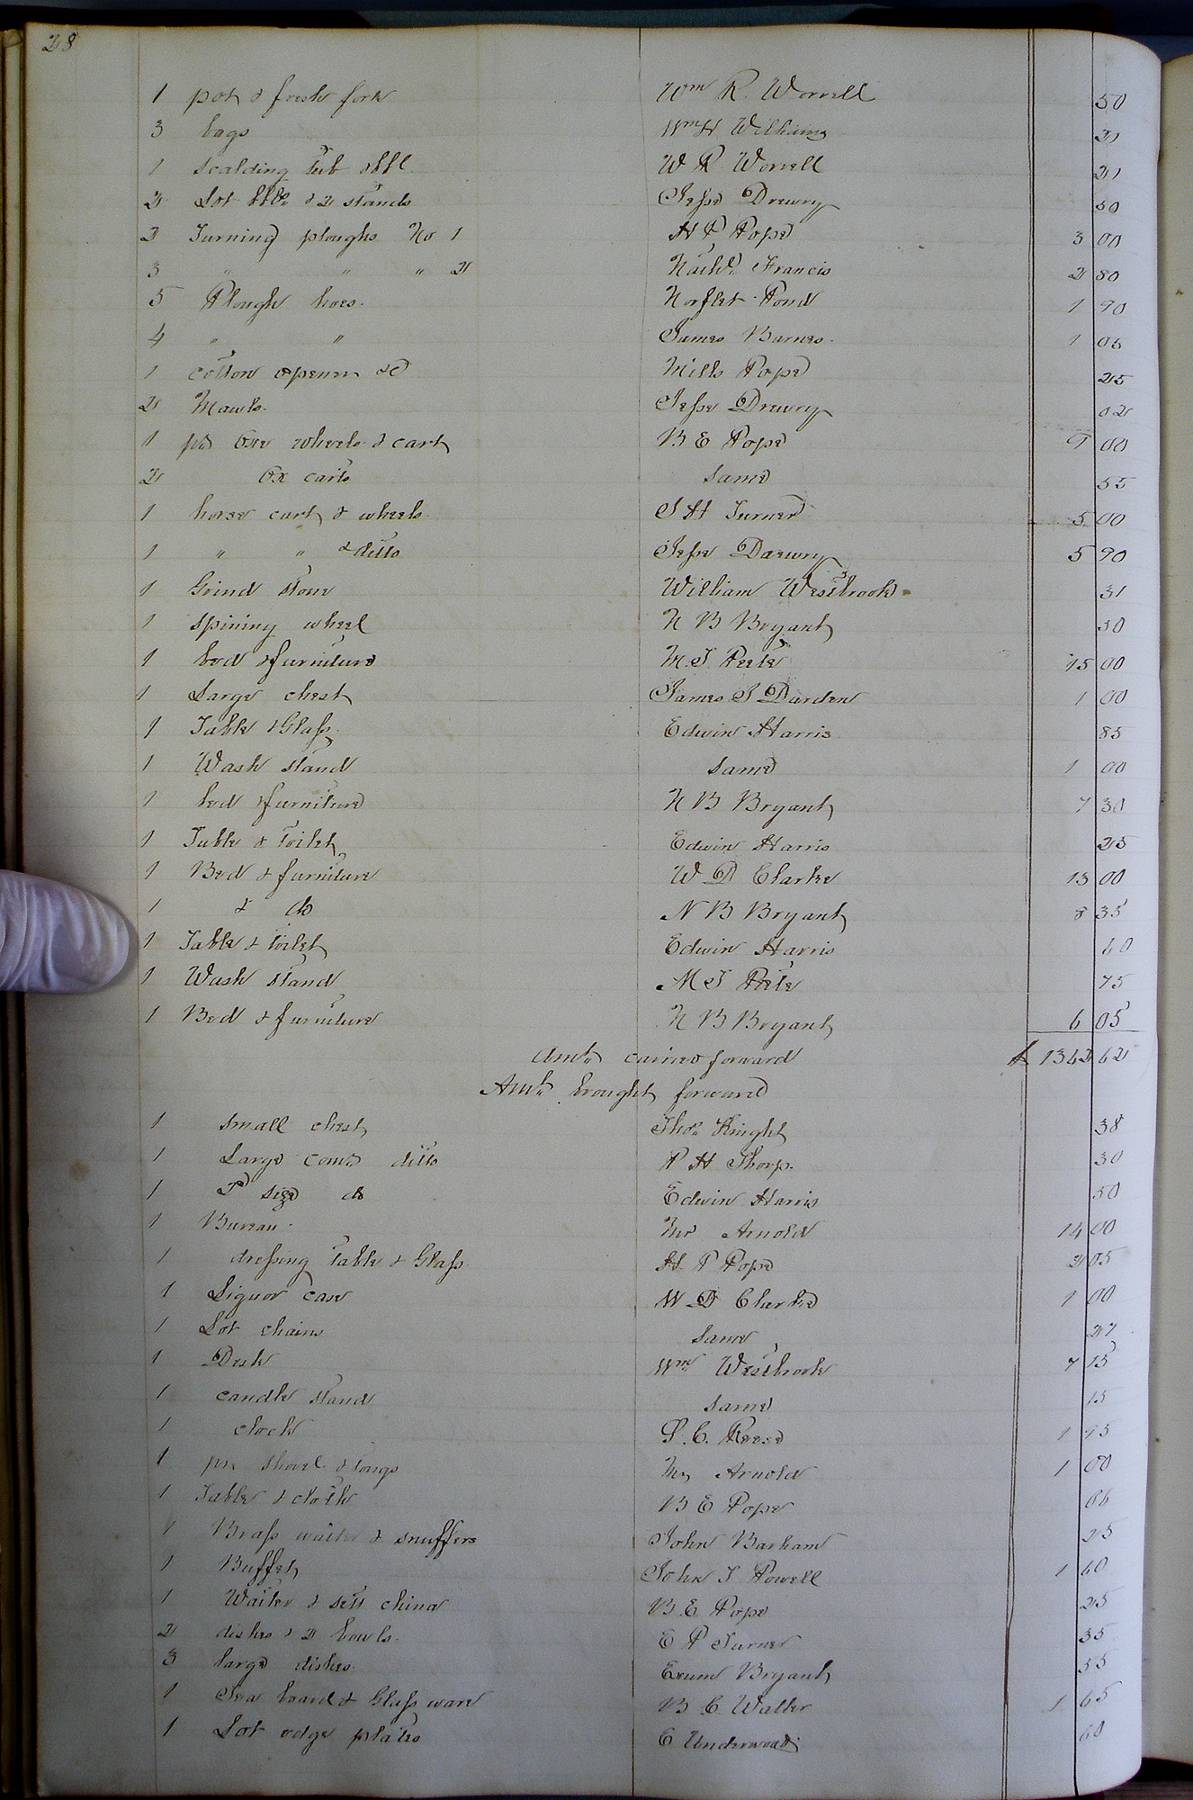 28
1 pot & fresh fork Wm R. Worrell 50
3 bags Wm H Williams 21
1 Scalding Tub & bbl W R Worrell 21
2 Lot bbls & 2 stands Jesse Drewry 50
2 Turning ploughs No 1 H P Pope 3 00
3 " " " 2 Nathl. Francis 2 80
5 Plough hoes Norflet Pond 1 90
4 " " James Barnes 1 06
1 cotton opener &c Mills Pope 25
2 Mawls Jesse Drewry 02
1 pr Oxe wheels & cart B E Pope 9 00
2 Ox carts Same 55
1 horse cart & wheels S H Turner 5 00
1 " " & ditto Jesse Drewry 5 90
1 Grind Stone William Westbrook 31
1 Spining wheel N B Bryant 50
1 bed & furniture M. T. Peete 15 00
1 Large chest James S Darden 1 00
1 Table & Glass Edwin Harris 85
1 Wash stand Same 1 00
1 bed & furniture N B Bryant 7 30
1 Table & Toilet Edwin Harris 25
1 Bed & furniture W D Clarke 13 00
1 & do N B Bryant 8 35
1 Table & toilet Edwin Harris 60
1 Wash stand M T Peete 75
1 Bed & furniture N B Bryant 6 05
Amt. carried forward $ 1362 62
Amt. brought forward
1 small chest Thos. Knight 38
1 Large com. ditto P H Thorp. 30
1 size do Edwin Harris 50
1 Bureau Arnold 14 00
1 dressing Table & Glass H. P Pope 2 05
1 Liquor case W D Clarke 1 00
1 Lot chains Same 27
1 Desk Wm Westbrook 7 15
1 candle stand Same 15
1 clock S. C. Reese 1 95
1 pr shovel & tongs Arnold 1 00
1 Table & cloth B E Pope 06
1 Brass waiter & snuffers John Barham 25
1 Buffet John T Powell 1 60
1 Waiter & sett china B. E Pope 25
2 dishes & 2 bowls E P Turner 35
3 large dishes Exum Bryant 55
1 Tea board & Glass ware B. C. Waller 1 65
1 Lot edge plates C Underwood 60